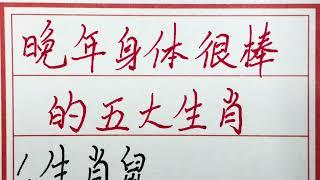 晚年身体很棒
的五大生肖
1、生肖鼠